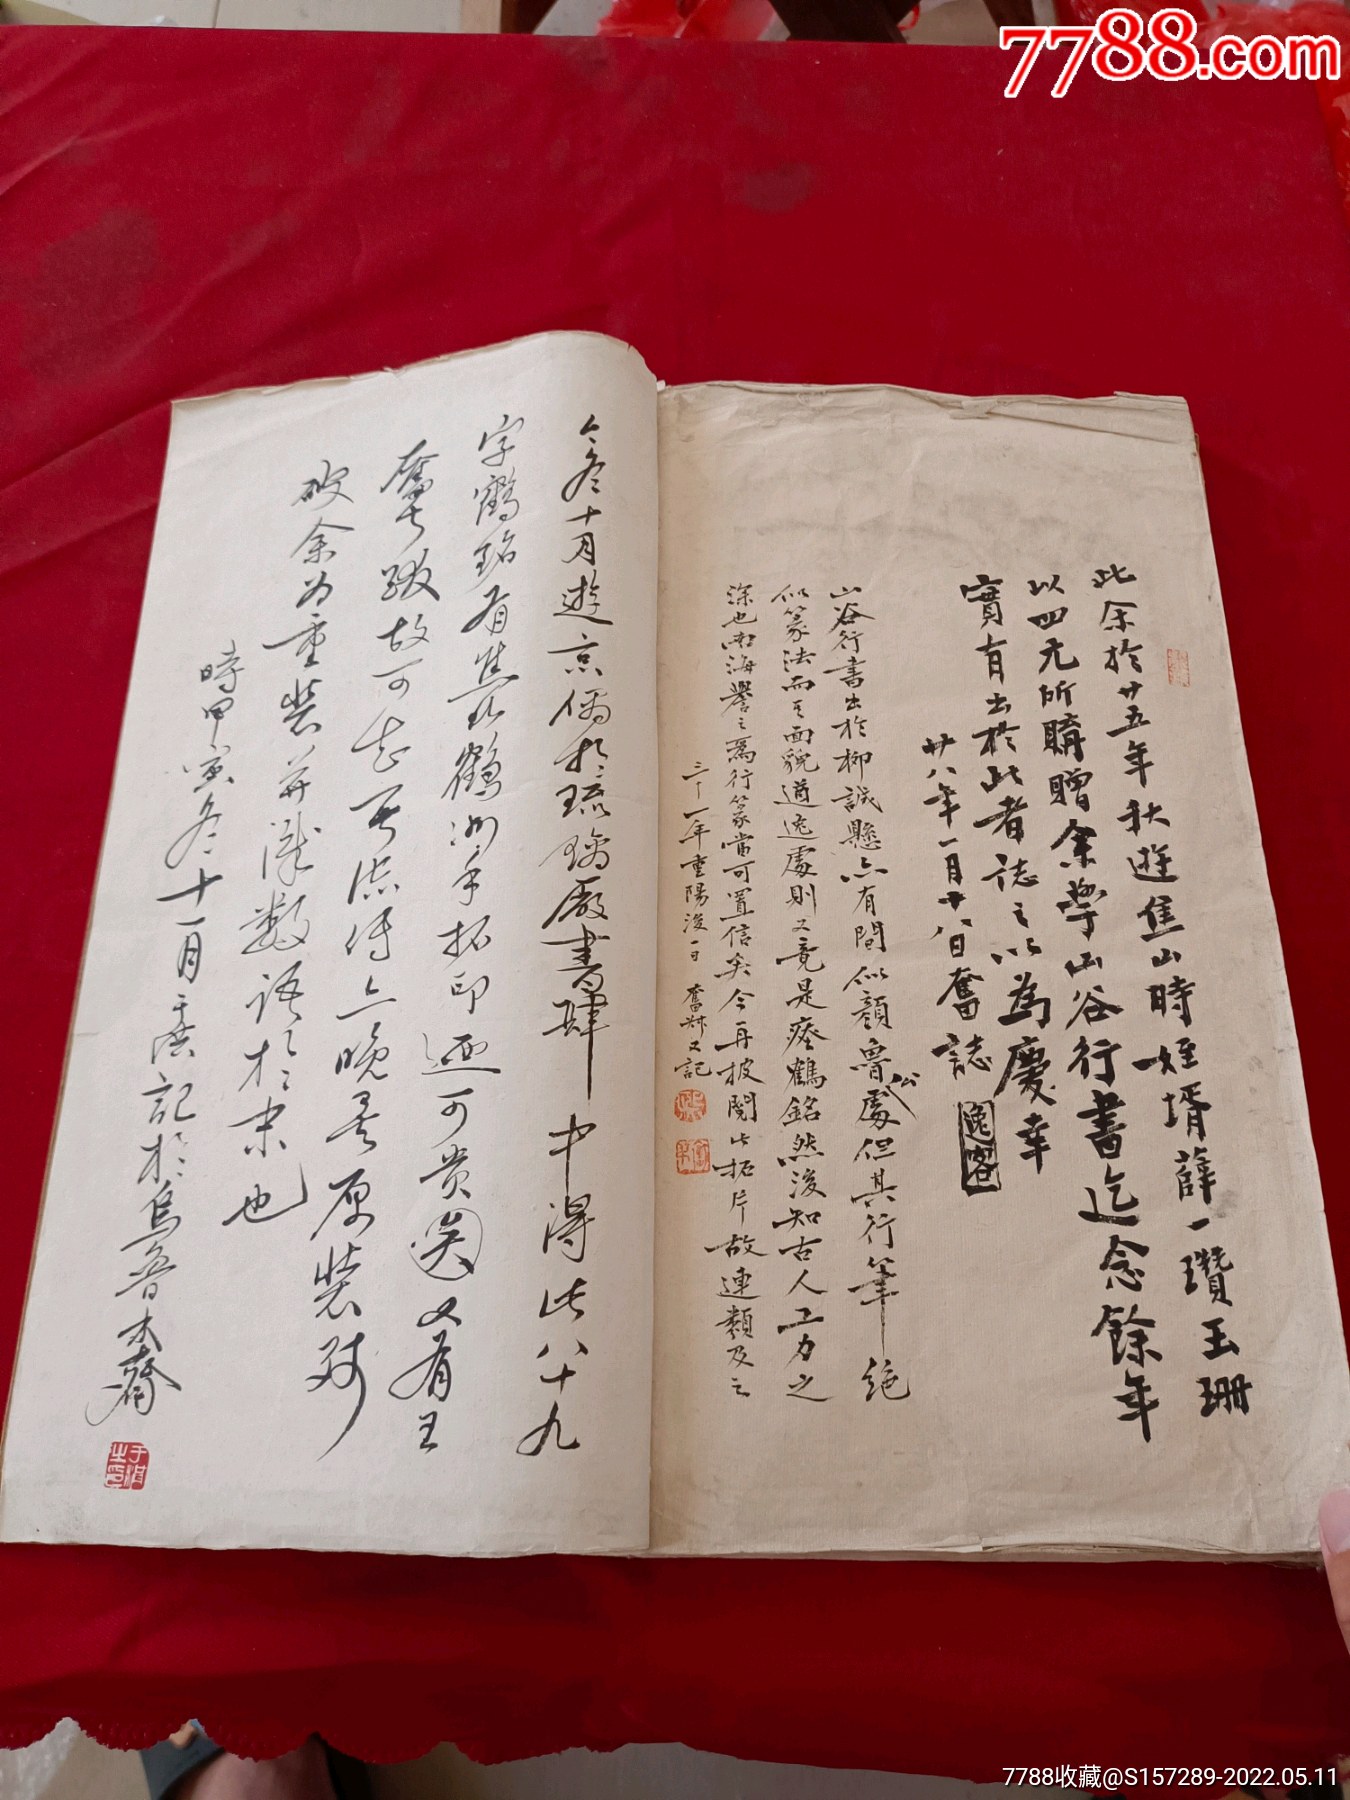 7788.com
此余於廿五年秋遊焦山時姪壻薛一瓚玉珊
以四元所購贈余學山谷行書迄念餘年
實有出於此者誌之以為慶幸
廿八年一月十八日奮誌
逸客
山谷行書出於柳誠懸亦有間似顏魯公處但其行筆絕
似篆法而其面貌遒逸處則又竟是瘞鶴銘然後知古人工力之
深也南海譽之為行篆當可置信矣今再披閱此拓片故連類及之
三十一年重陽後一日 奮 又記
今冬十月遊京偶於琉璃廠書肆中得此八十九
字鶴銘有焦北鶴洲手拓印迺可貴図又有王
奮 跋故可
破余為重裝并識數語於末也
時甲寅冬十一月 記於烏魯木齊
7788收藏@S157289-2022.05.11